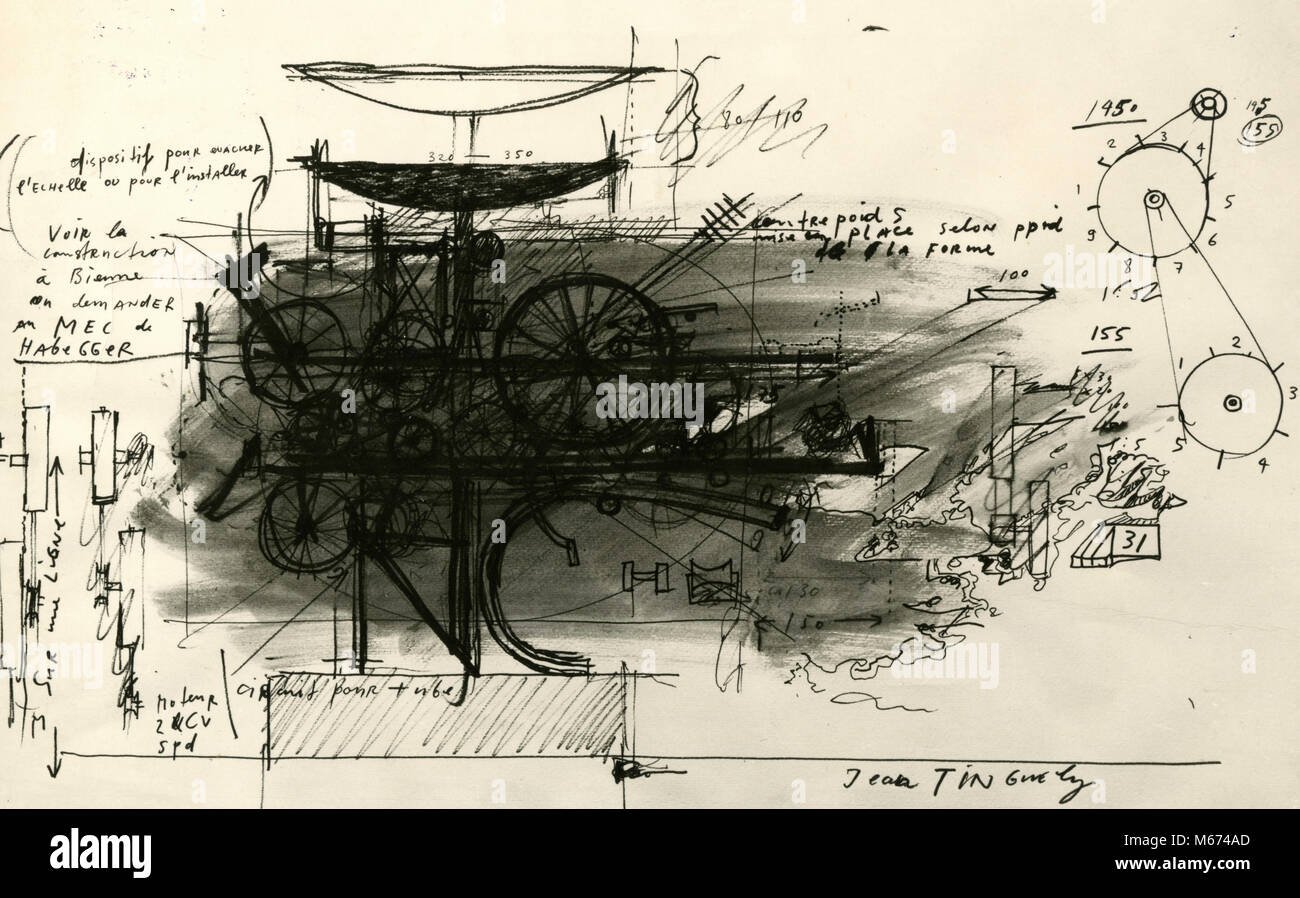 dispositif pour evacuer
l'ECHElle ou pour l'installer
Voir la
construction
à Bienne
ou demANDER
au MEC de
HABEGGER
80 110
320 — 350
contrepoids
mise en PLACE selon
LA FORME
100
1450
2 3 4
1 5
9 6
8 7
155
155
1 2
3
5 4
31
150
M SUR une Ligne
circuit pour tube
Moteur
2 CV
spd
Jean TINGuely
alamy
Image ID: M674AD
www.alamy.com
alamy stock photo